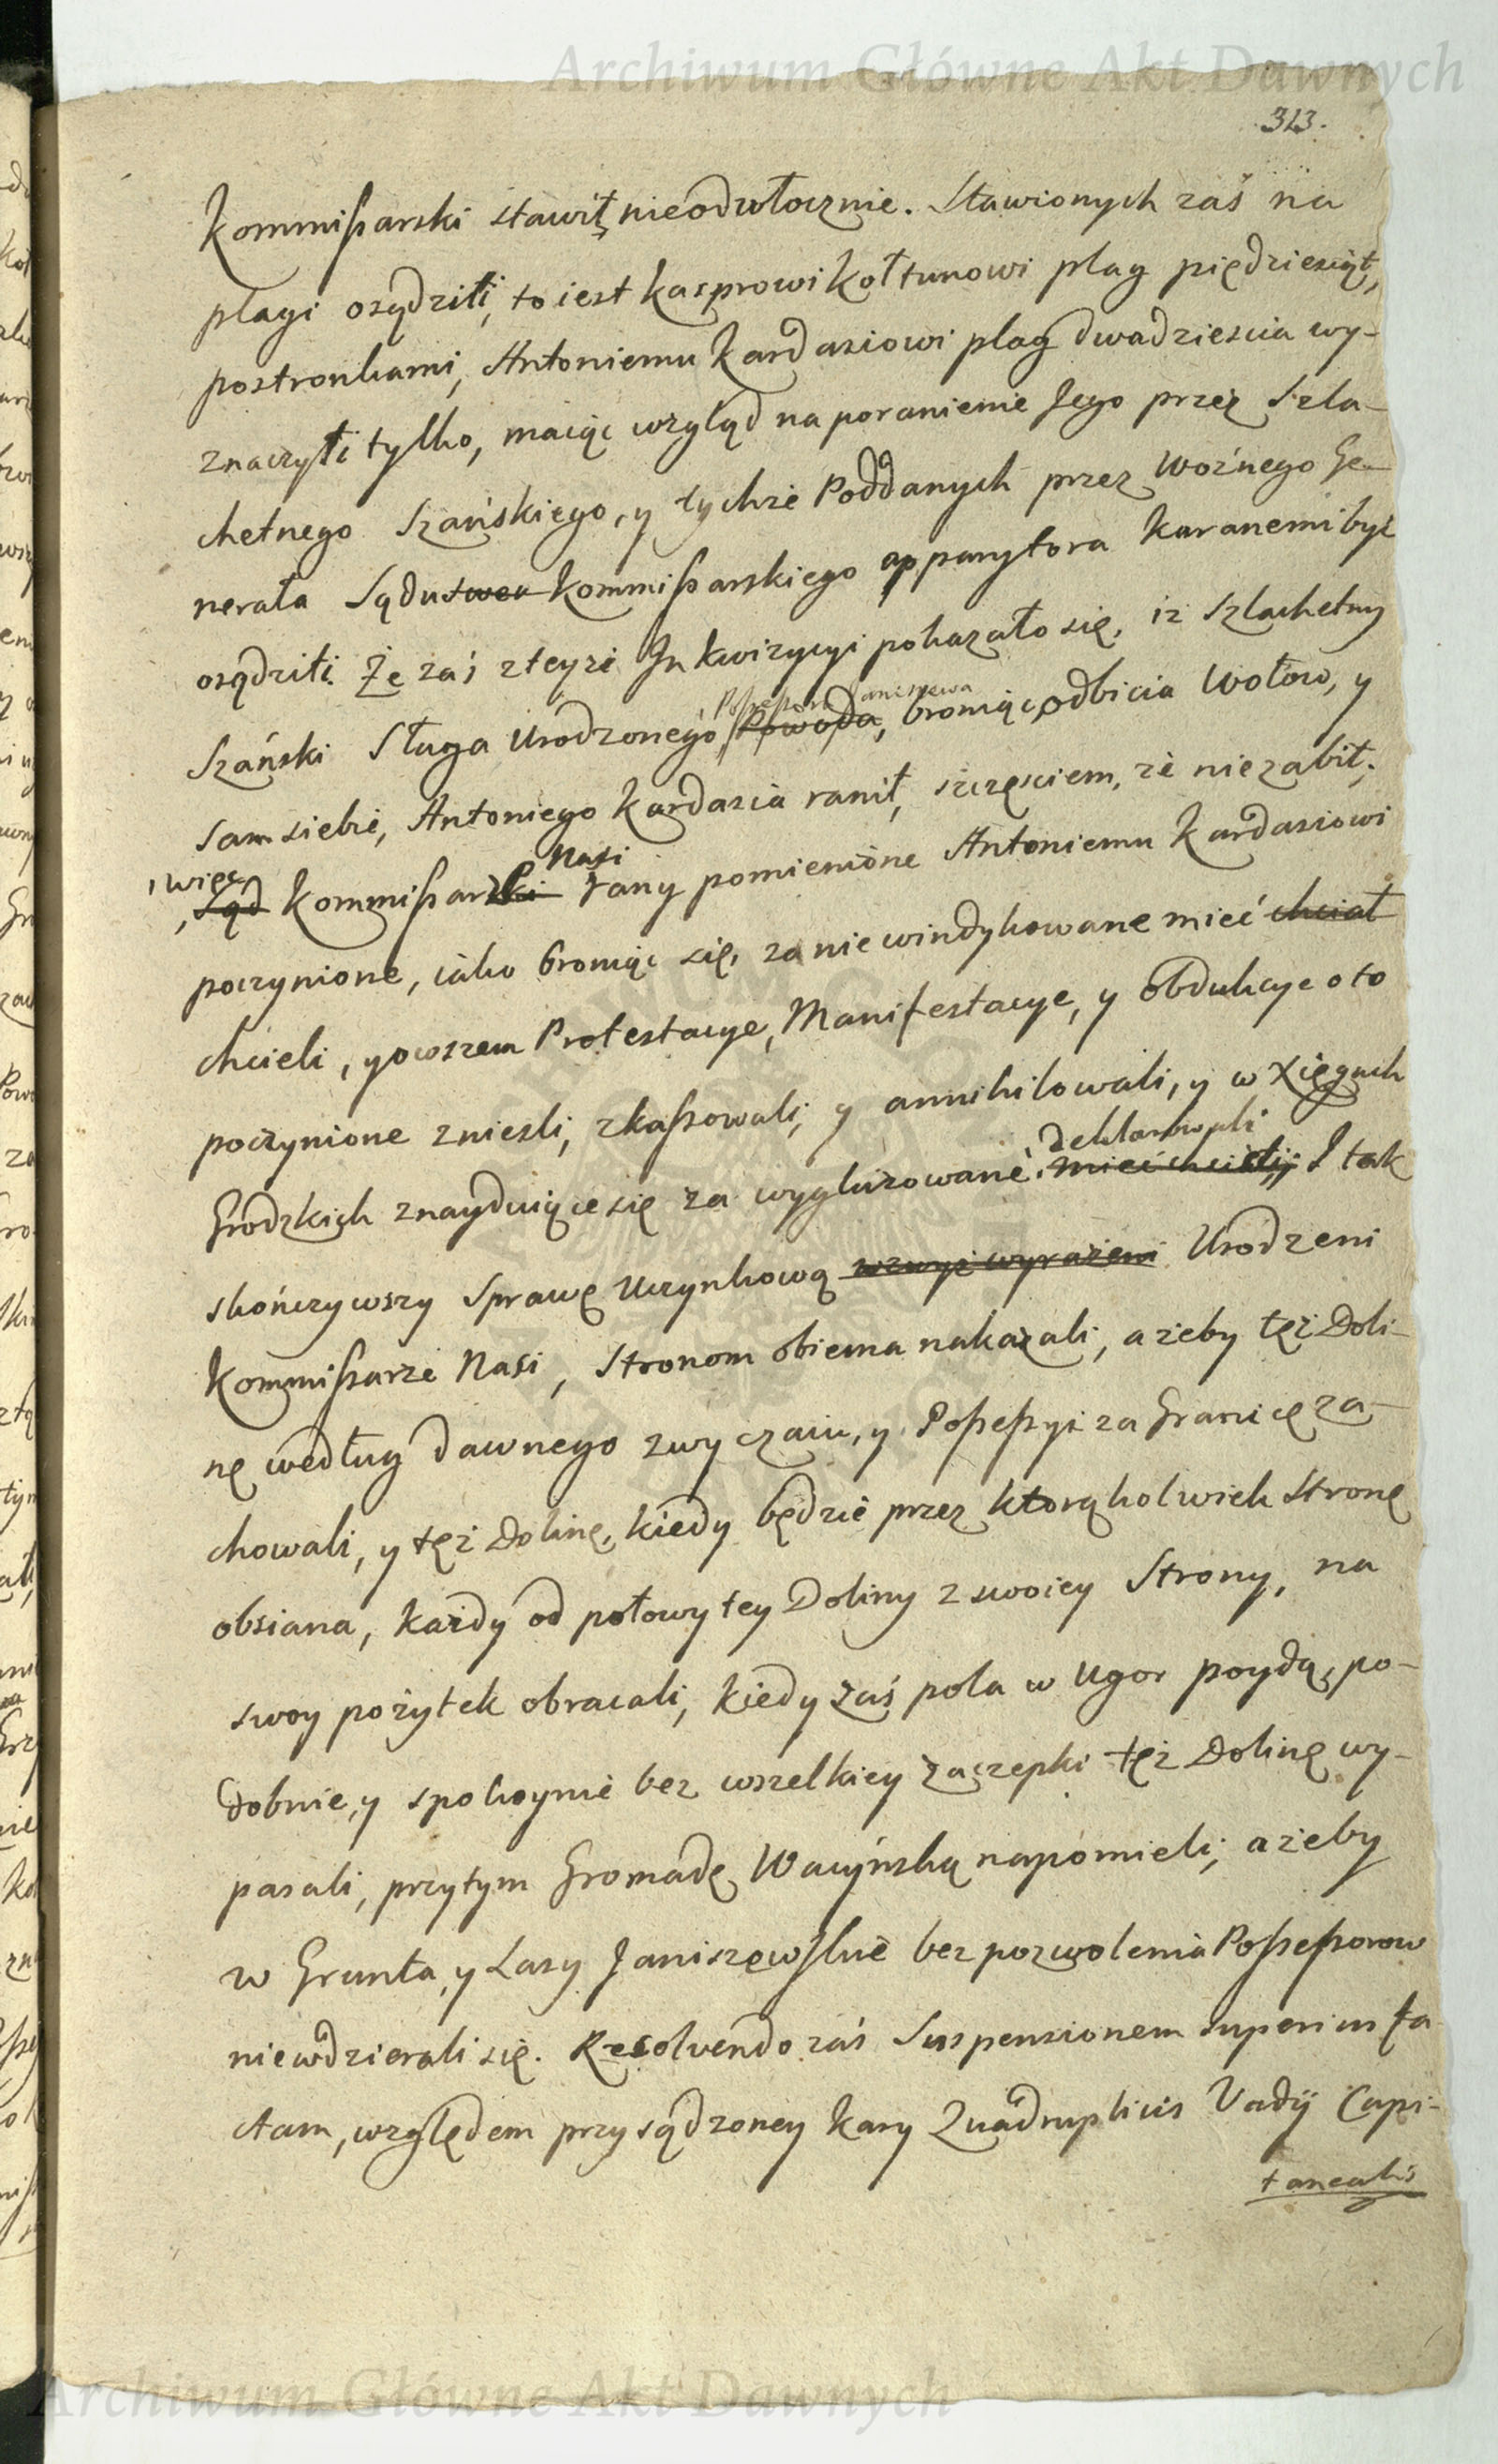 Archiwum Główne Akt Dawnych
313.
Kommißarski stawił nieodwłocznie. Stawionych zaś na
plagi osądzili, to iest Kasprowi Kołtunowi plag pięćdziesiąt,
postronkami, Antoniemu Kardasiowi plag dwadziescia wy-
znaczyli tylko, maiąc wzgląd na poranienie Jego przez Szla-
chetnego Szańskiego, y tychże Poddanych przez Woźnego Ge-
nerała Sądu sweu Kommißarskiego apparytora karanemi być
osądzili. Że zaś z teyże Inkwizycyi pokazało się, iż Szlachetny
Poßeßora Janiszewa
Szański Sługa Urodzonego Powoda, broniąc odbicia Wołow, y
sam siebie, Antoniego Kardasia ranił, szczęsciem, że nie zabił;
, więc Nasi
Sąd Kommißarski rany pomienione Antoniemu Kardasiowi
poczynione, iako broniąc się, za nie windykowane mieć chciał
chcieli, y owszem Protestacye, Manifestacye, y obdukcye o to
poczynione znieśli, zkaßowali, y annihilowali, y w Xięgach
deklarowali
Grodzkich znayduiące się za wygluzowane mieć chcieli; I tak
skończywszy Sprawę Uczynkową wzwyż wyrażeni Urodzeni
Kommißarze Nasi, Stronom obiema nakazali, ażeby tęż Doli-
nę według dawnego zwyczaiu, y Poßeßyi za Granicę za-
chowali, y tęż Dolinę, kiedy będzie przez ktorąkolwiek Stronę
obsiana, każdy od połowy tey Doliny z swoiey Strony, na
swoy pożytek obracali, kiedy zaś pola w Ugor poydą, po-
dobnie, y spokoynie bez wszelkiey zaczepki tęż Dolinę wy-
pasali, przytym Gromadę Wacyńską napomieli, ażeby
w Grunta, y Lasy Janiszewskie bez pozwolenia Poßeßorow
niewdzierali się. Resolvendo zaś Suspensionem superius fa-
ctam, względem przysądzoney kary Quadruplicis Vadij Capi-
tanealis
Archiwum Główne Akt Dawnych